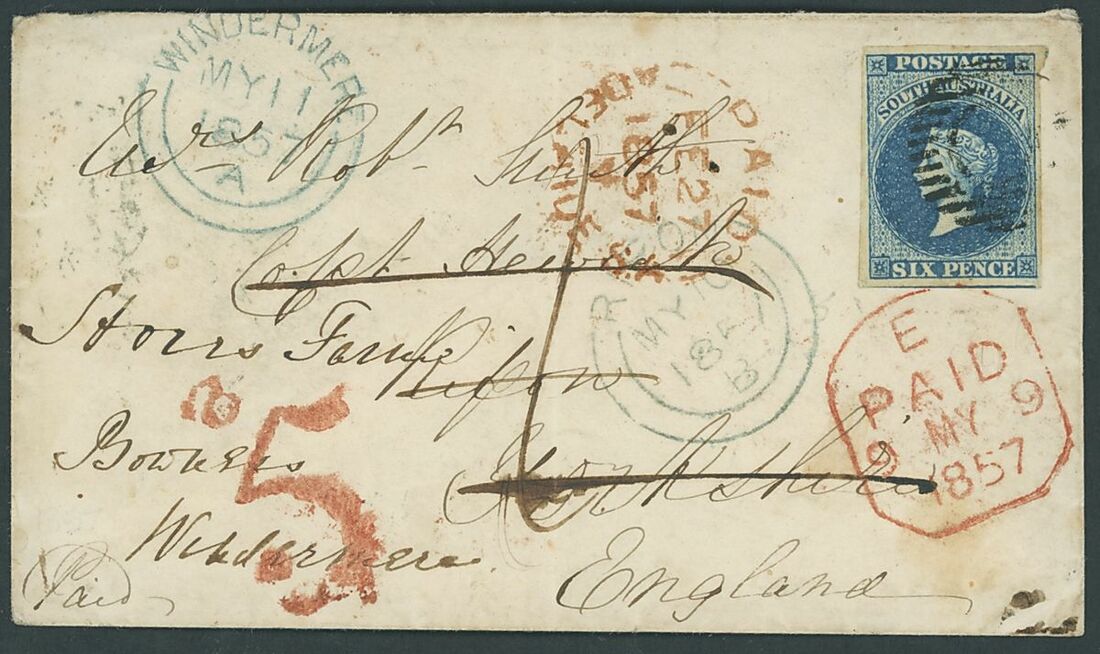 WINDERMERE
MY 11
1857
A
PAID
FE 27
1857
ADELAIDE
S.A.
POSTAGE
SOUTH AUSTRALIA
SIX PENCE
Robt
Capt
RIPON
MY 10
185
B
Storrs
Ripon
E
PAID
9 MY 9
1857
5
Bowness
Yorkshire
Windermere
England
Paid